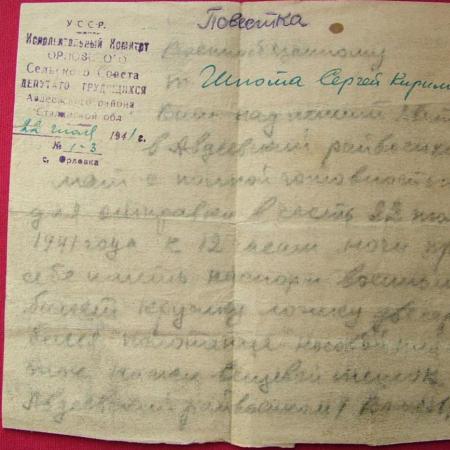 У С С Р.
Исполнительный Комитет
ОРЛОВСКОГО
Сельского Совета
ДЕПУТАТОВ ТРУДЯЩИХСЯ
Авдеевского района
Сталинской обл
22 июля 1941 г.
№ 1-3
с. Орловка
Повестка
Военнообязанному
т. Шпота Сергей Кирим
Вам надлежит явит
в Авдеевский райвоенко
мат с полной готовностью
для отправки в часть 22 июл
1941 года к 12 часам ночи пр
себе иметь паспорт военный
билет кружку ложку две пар
белья полотенце
нож вещевой мешок
Авдеевский райвоенком